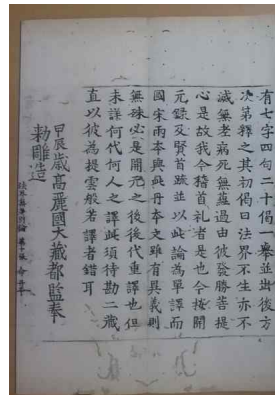 有七字四句二十偈一舉並出後方
次第釋之其初偈曰法界不生亦不
滅無老病死無蘊過由彼發勝菩提
心是故我今稽首礼者是也今按開
元錄及賢首疏並以此論為單譯而
國宋兩本與此丹本文雖有異義則
無殊必是開元之後後代重譯也但
未詳何代何人之譯此須待勘二藏
直以彼為提雲般若譯者錯耳
甲辰歲高麗國大藏都監奉
勅雕造